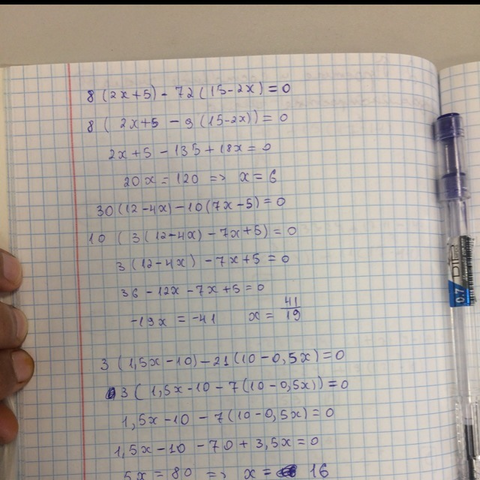 8 (2x+5) - 72 (15-2x) = 0
8 ( 2x+5 - 9 (15-2x)) = 0
2x+5 - 135 + 18x = 0
20x = 120 => x = 6
30 (12-4x) - 10 (7x-5) = 0
10 ( 3(12-4x) - 7x+5) = 0
3 (12-4x) - 7x+5 = 0
36 - 12x - 7x + 5 = 0
-19x = -41 x = 41/19
3 (1,5x-10) - 21 (10-0,5x) = 0
3 ( 1,5x-10 - 7(10-0,5x)) = 0
1,5x-10 - 7(10-0,5x) = 0
1,5x-10 - 70 + 3,5x = 0
5x = 80 => x = 16
0.7